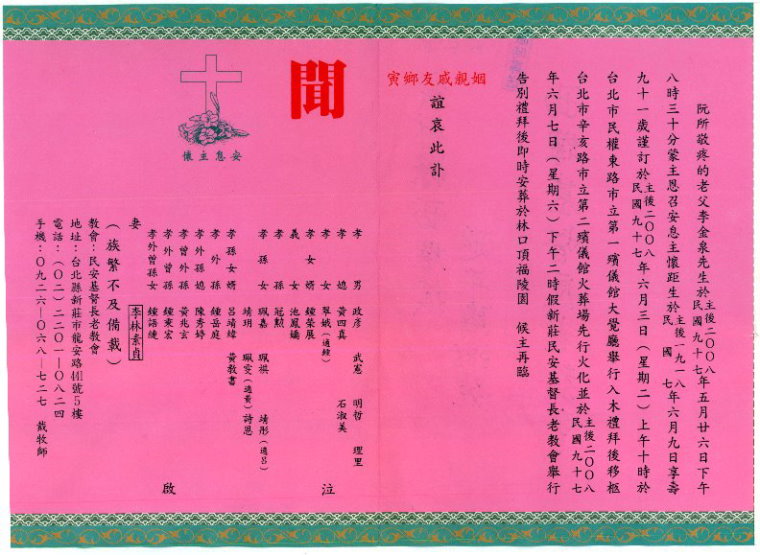 阮所敬疼的老父李金泉先生於主後二〇〇八民國九十七年五月廿六日下午
八時三十分蒙主恩召安息主懷距生於主後一九一八民國七年六月九日享壽
九十一歲謹訂於主後二〇〇八民國九十七年六月三日（星期二）上午十時於
台北市民權東路市立第一殯儀館大覺廳舉行入木禮拜後移柩
台北市辛亥路市立第二殯儀館火葬場先行火化並於主後二〇〇八民國九十七
年六月七日（星期六）下午二時假新莊民安基督長老教會舉行
告別禮拜後即時安葬於林口頂福陵園　候主再臨
姻親戚友鄉寅
誼哀此訃
聞
安息主懷
孝男 政彥 武憲 明哲 理里
孝媳 黃四真 石淑美
孝女 翠娥（適鍾）
孝女婿 鍾榮展
義女 池鳳嬌
孝孫 冠勲
孝孫女 珮嘉 珮祺 靖彤（適呂）
靖玥 珮雯（適黃）詩恩
孝孫女婿 呂靖緯 黃教書
孝外孫 鍾岳庭
孝外孫媳 陳秀婷
孝曾外孫 黃兆玄
孝外曾孫 鍾秉宏
孝外曾孫女 鍾語緁
妻 李林素貞
泣
啟
（族繁不及備載）
教會：民安基督長老教會
地址：台北縣新莊市龍安路441號5樓
電話：（〇二）二二〇一—〇八二四
手機：〇九二六—〇六八—七二七　戴牧師